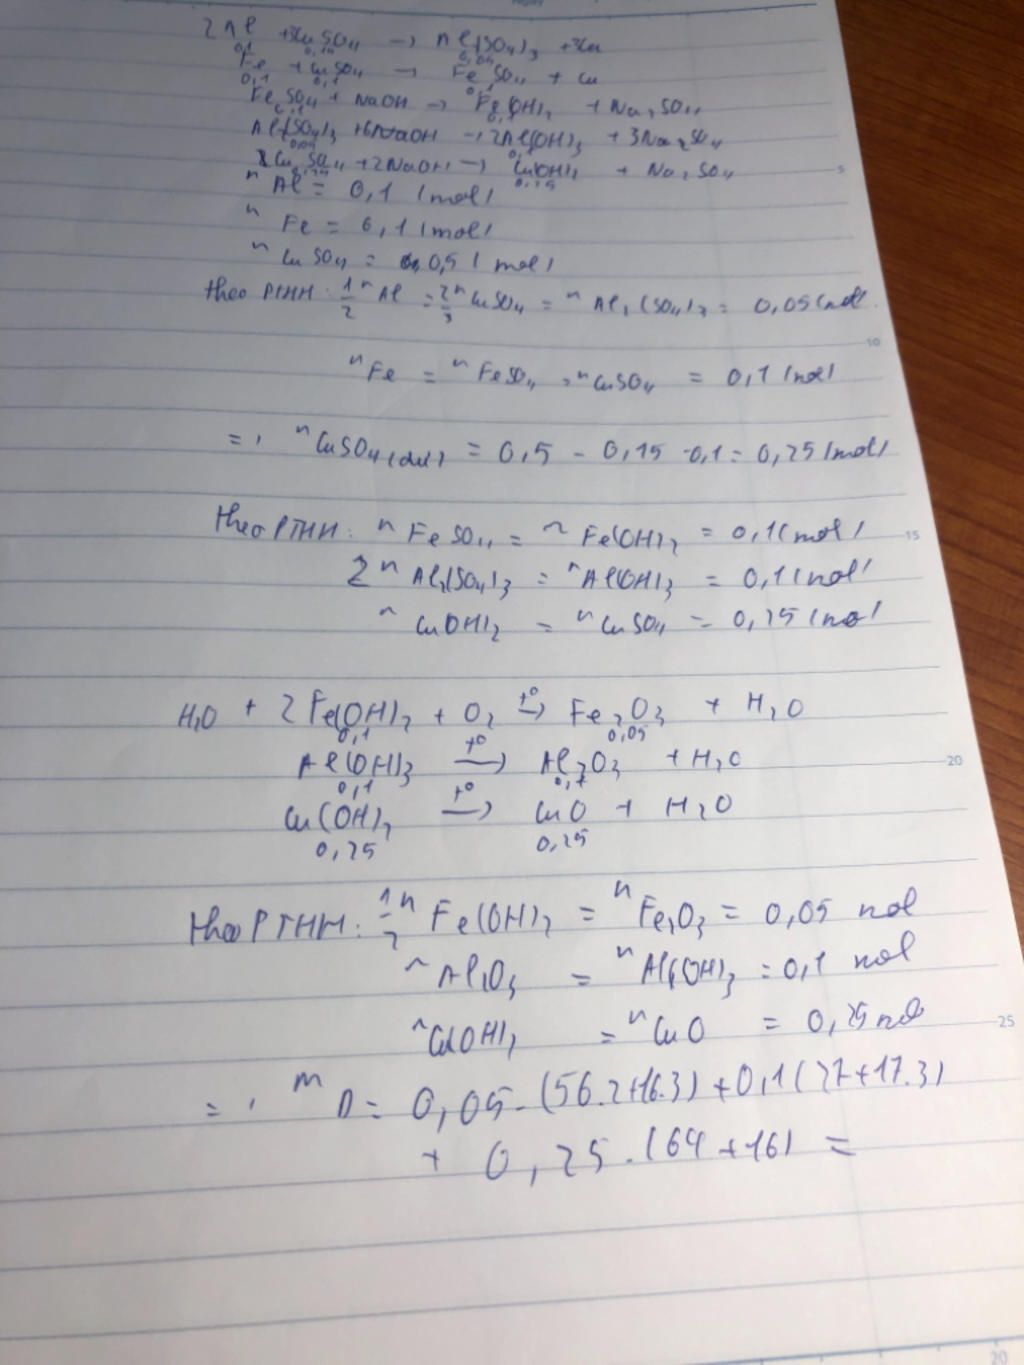 2Al + 3CuSO4 → Al2(SO4)3 + 3Cu
0,1 0,15 0,05
Fe + CuSO4 → FeSO4 + Cu
0,1 0,1 0,1
FeSO4 + NaOH → Fe(OH)2 + Na2SO4
0,1 0,1
Al2(SO4)3 + 6NaOH → 2Al(OH)3 + 3Na2SO4
0,05 0,1
CuSO4 + 2NaOH → Cu(OH)2 + Na2SO4
0,25 0,25
5
n Al = 0,1 (mol)
n Fe = 0,1 (mol)
n CuSO4 = 0,5 (mol)
theo PTHH: 1/2 n Al = 2/3 n CuSO4 = n Al2(SO4)3 = 0,05 (mol)
10
n Fe = n FeSO4 = n CuSO4 = 0,1 (mol)
=> n CuSO4 (dư) = 0,5 - 0,15 - 0,1 = 0,25 (mol)
theo PTHH: n FeSO4 = n Fe(OH)2 = 0,1 (mol)
15
2 n Al2(SO4)3 = n Al(OH)3 = 0,1 (mol)
n Cu(OH)2 = n CuSO4 = 0,25 (mol)
H2O + 2Fe(OH)2 + O2 t° → Fe2O3 + H2O
0,1 0,05
Al(OH)3 t° → Al2O3 + H2O
20
0,1 0,1
Cu(OH)2 t° → CuO + H2O
0,25 0,25
theo PTHH: 1/2 n Fe(OH)2 = n Fe2O3 = 0,05 mol
n Al2O3 = n Al(OH)3 = 0,1 mol
n Cu(OH)2 = n CuO = 0,25 mol
25
=> m D = 0,05.(56.2+16.3) + 0,1(27+17.3)
+ 0,25.(64+16) =
20